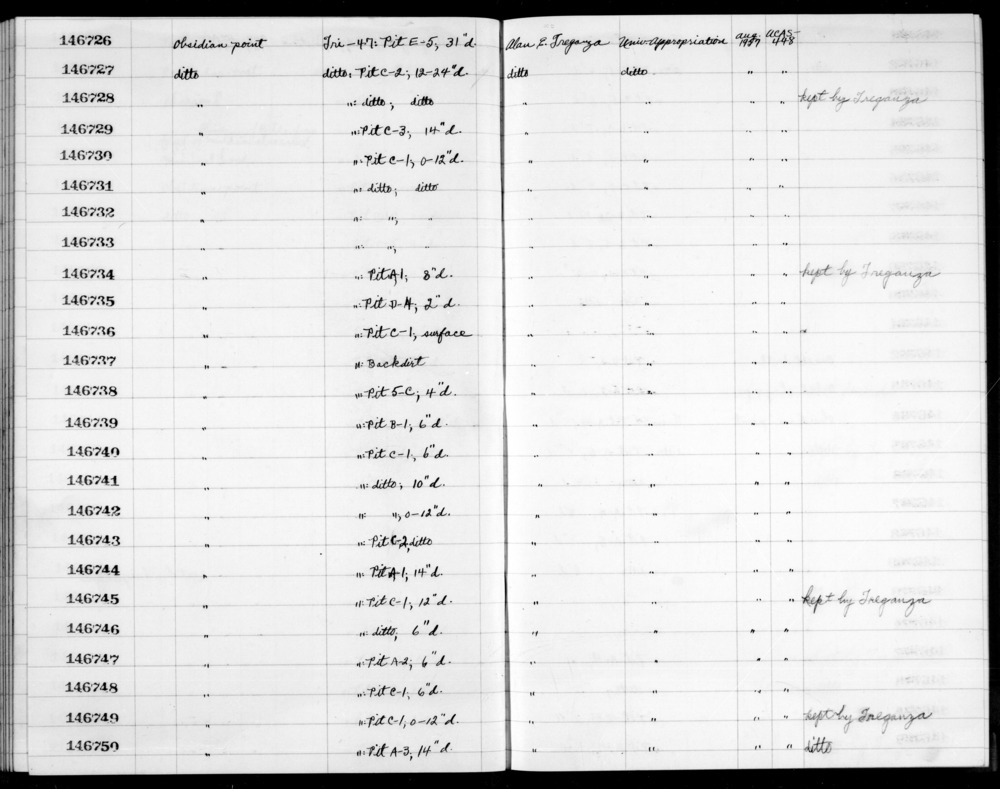 146726 Obsidian point Tri-47: Pit E-5, 31"d. Alan E. Treganza Univ. Appropriation Aug. 1957 ACAS-448
146727 ditto ditto: Pit C-2; 12-24"d. ditto ditto " "
146728 " ": ditto; ditto " " " " kept by Treganza
146729 " ": Pit C-3; 14"d. " " " "
146730 " ": Pit C-1; 0-12"d. " " " "
146731 " ": ditto; ditto " " " "
146732 " ": "; " " " " "
146733 " ": "; " " " " "
146734 " ": Pit A-1; 8"d. " " " " kept by Treganza
146735 " ": Pit D-4; 2"d. " " " "
146736 " ": Pit C-1, surface " " " " "
146737 " ": Backdirt " " " "
146738 " ": Pit 5-C; 4"d. " " " "
146739 " ": Pit B-1, 6"d. " " " "
146740 " ": Pit C-1, 6"d. " " " "
146741 " ": ditto; 10"d. " " " "
146742 " ": "; 0-12"d. " " " "
146743 " ": Pit C-2, ditto " " " "
146744 " ": Pit A-1; 14"d. " " " "
146745 " ": Pit C-1, 12"d. " " " " kept by Treganza
146746 " ": ditto; 6"d. " " " "
146747 " ": Pit A-2; 6"d. " " " "
146748 " ": Pit C-1, 6"d. " " " "
146749 " ": Pit C-1, 0-12"d. " " " " kept by Treganza
146750 " ": Pit A-3, 14"d. " " " " ditto